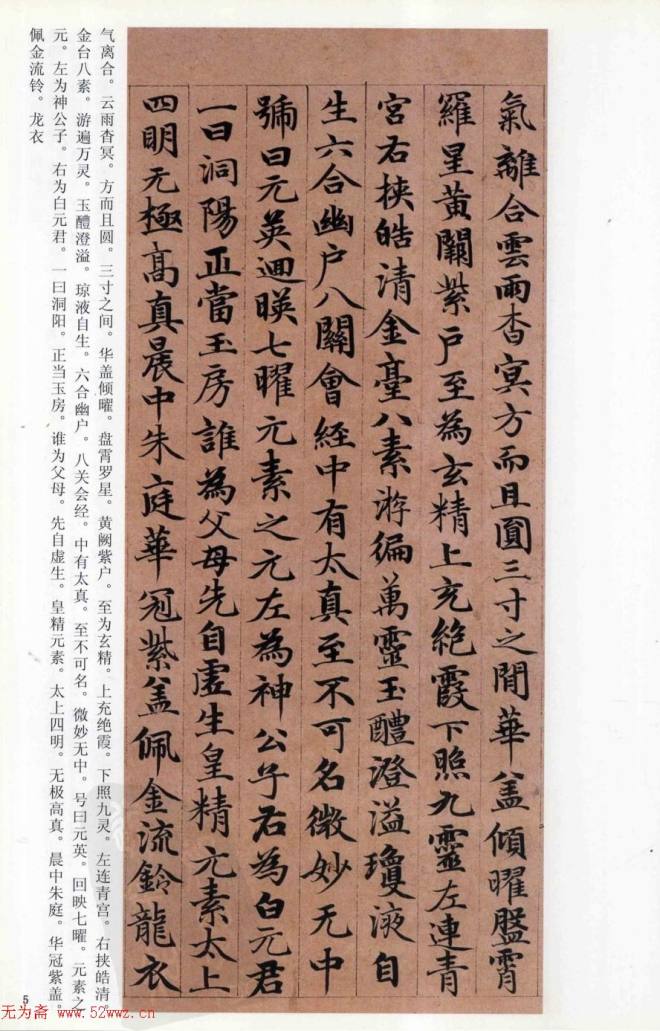 氣離合雲雨杳冥方而且圓三寸之間華盖傾曜盤霄
羅星黃闕紫户至為玄精上充絶霞下照九靈左連青
宮右挾皓清金臺八素游徧萬靈玉醴澄溢瓊液自
生六合幽户八關會経中有太真至不可名微妙无中
號曰元英迴暎七曜元素之元左為神公子右為白元君
一曰洞陽正當玉房誰為父母先自虛生皇精元素太上
四明无極高真晨中朱庭華冠紫盖佩金流鈴龍衣
气离合。云雨杳冥。方而且圆。三寸之间。华盖倾曜。盘霄罗星。黄阙紫户。至为玄精。上充绝霞。下照九灵。左连青宫。右挟皓清。
金台八素。游遍万灵。玉醴澄溢。琼液自生。六合幽户。八关会经。中有太真。至不可名。微妙无中。号曰元英。回映七曜。元素之
元。左为神公子。右为白元君。一曰洞阳。正当玉房。谁为父母。先自虚生。皇精元素。太上四明。无极高真。晨中朱庭。华冠紫盖。
佩金流铃。龙衣
5
无为斋 www.52wwz.cn